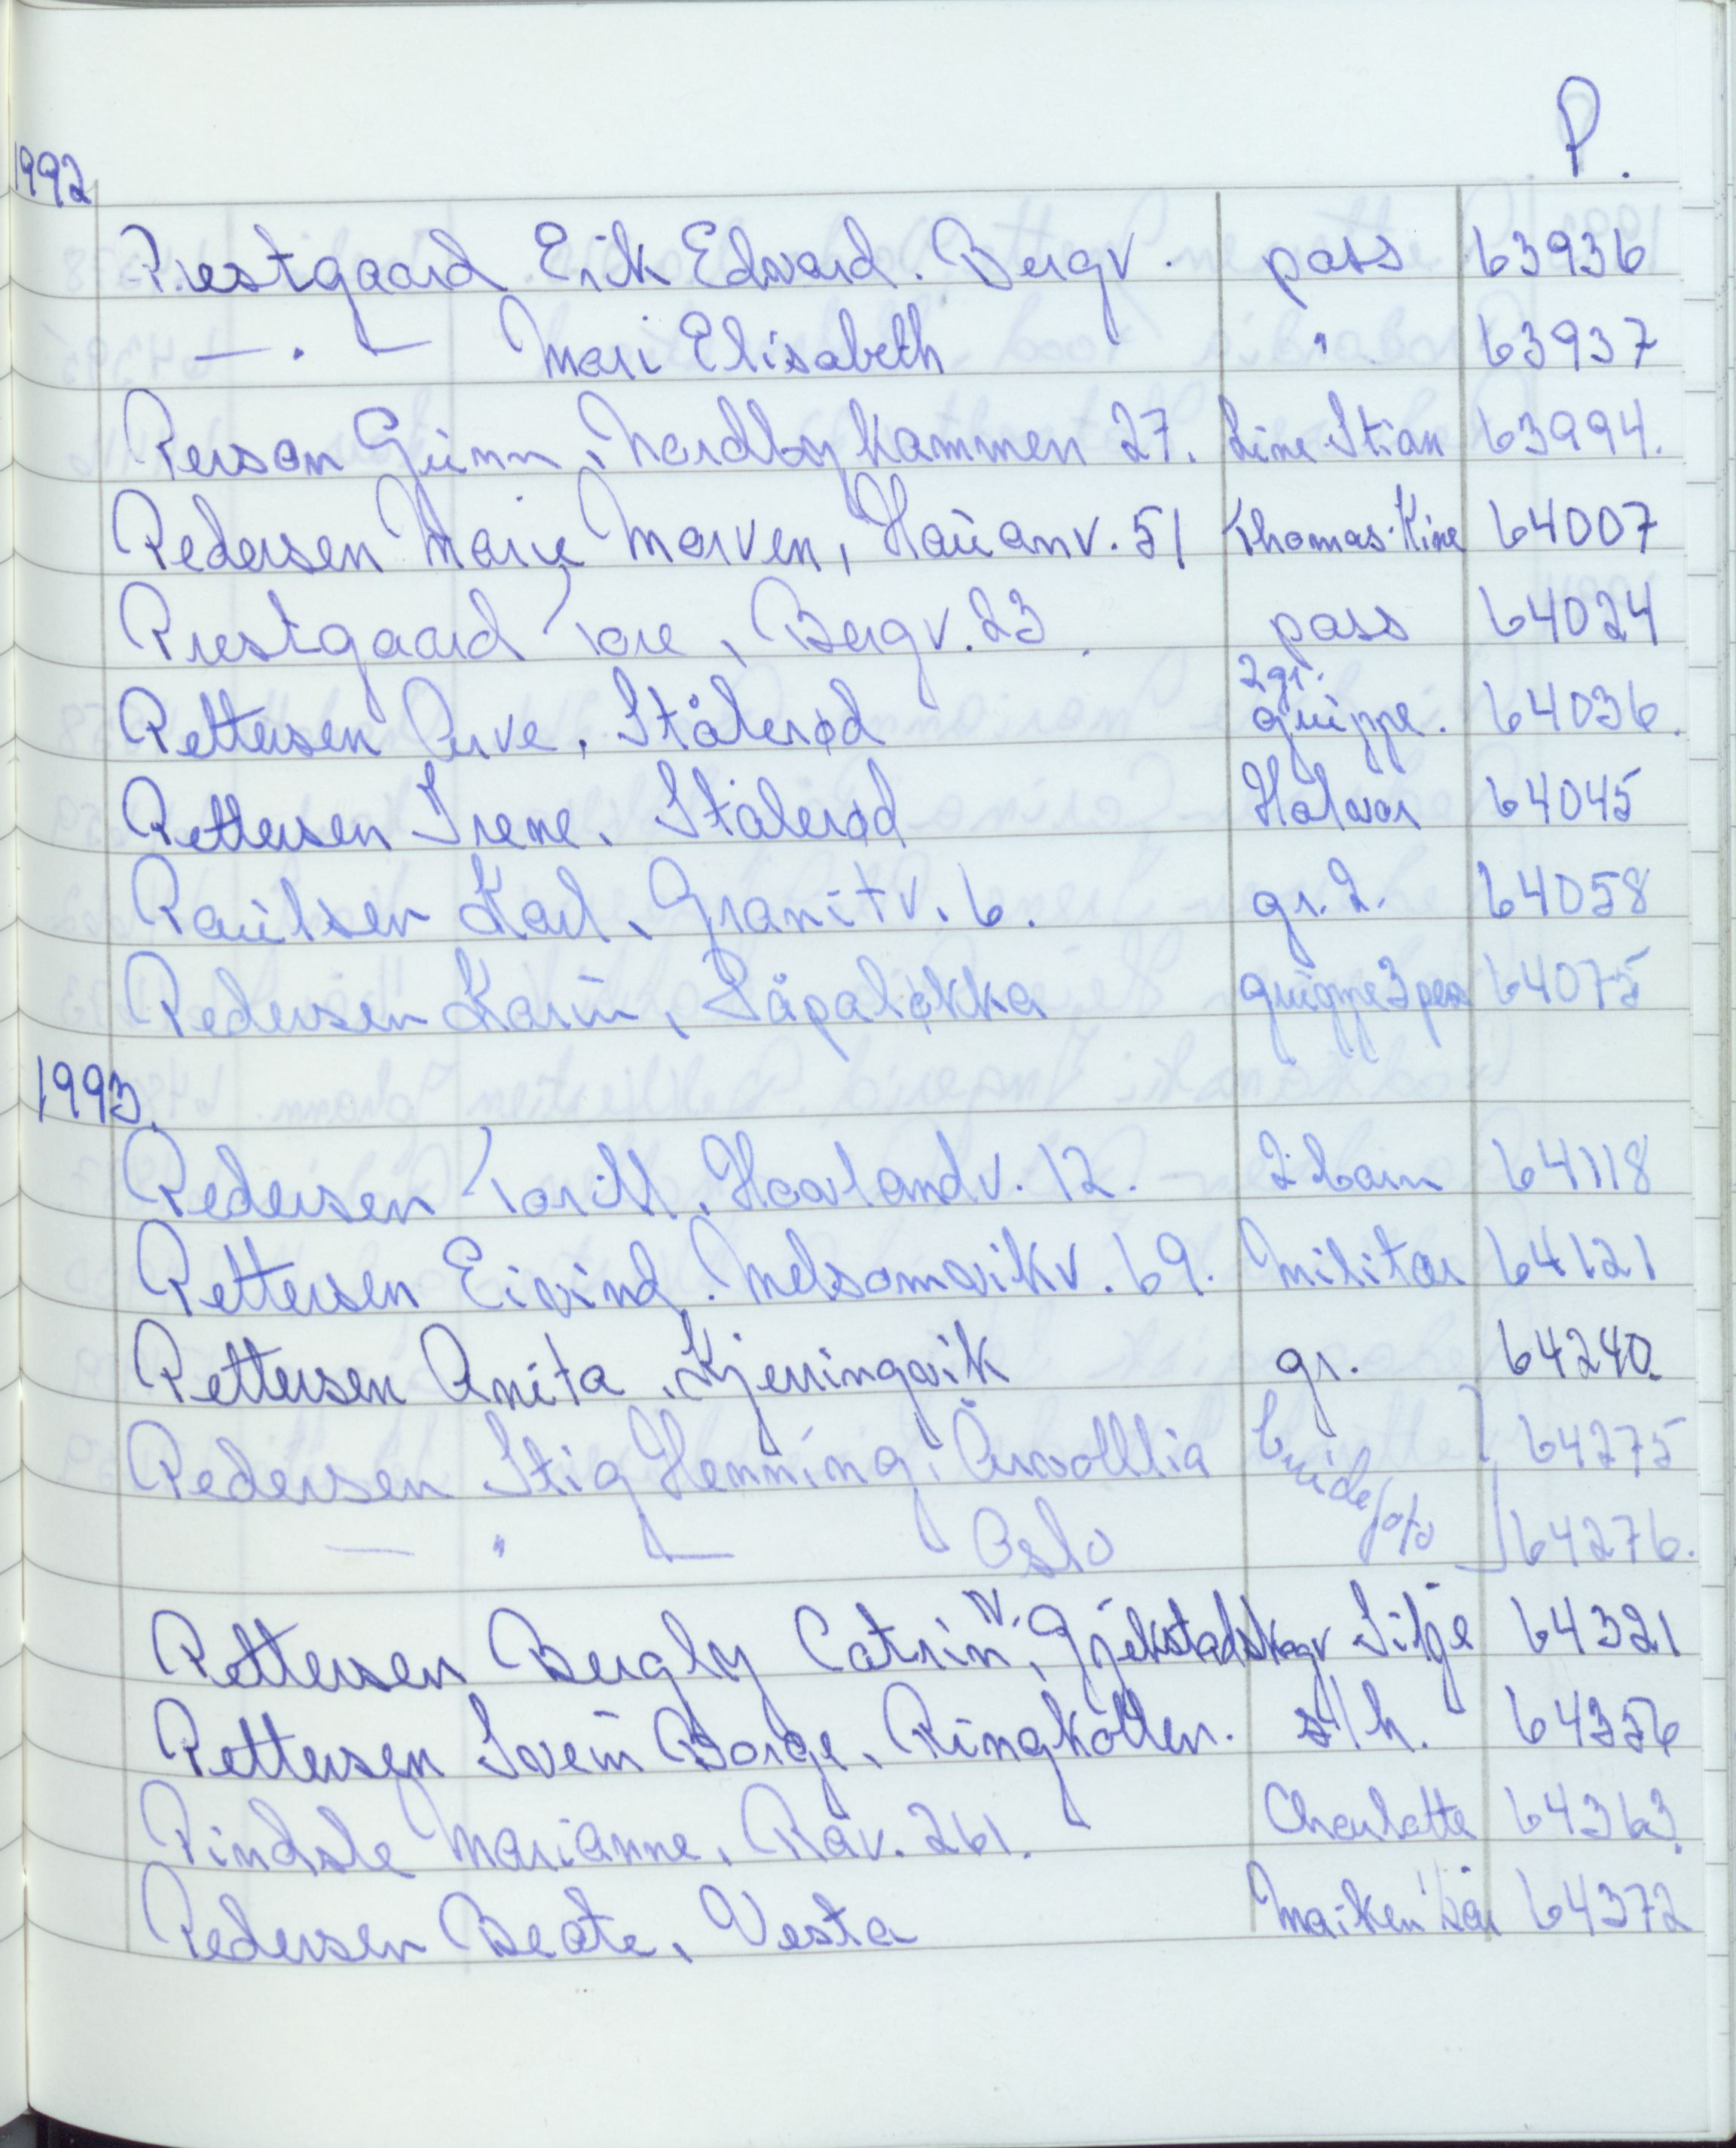 P.
1992
Prestgaard Erik Edvard. Bergv. pass 63936
— " — Mari Elisabeth " 63937
Person Gunn, Nordbykammen 27. Line Stian 63994.
Pedersen Marie Marven, Hauanv. 51 Thomas-Kine 64007
Prestgaard Tore, Bergv. 23. pass 64024
2 gr.
Pettersen Arve, Stålerød gruppe. 64036.
Pettersen Irene, Stålerød Halvor 64045
Paulsen Karl, Granitv. 6. gr. 2. 64058
Pedersen Karin, Såpaløkka gruppe 3 pers 64075
1993.
Pedersen Torill, Haavlandv. 12. 2 barn 64118
Pettersen Eivind, Melsomvikv. 69. Militær 64121
Pettersen Anita, Kjerringvik gr. 64240.
Pedersen Stig Henning, Årvolllia brudefoto 64275
— " — Oslo 64276.
Pettersen Bergly Catrin N., Gjekstadskogv Silje 64321
Pettersen Svein Børge, Ringkollen. s/h. 64356
Pindsle Marianne, Råv. 261. Charlotte 64363.
Pedersen Beate, Vesta Maiken 64372